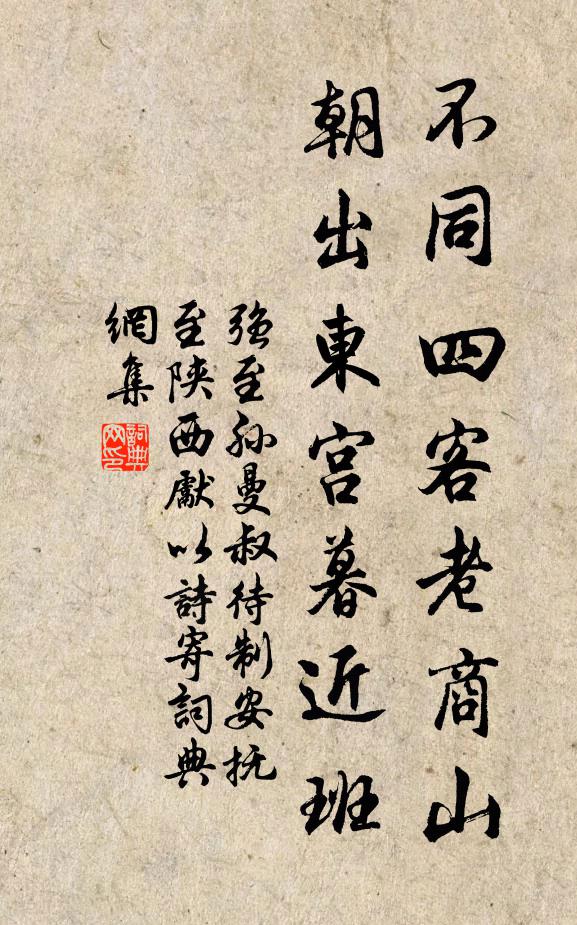 不同四客老商山
朝出東宮暮近班
強至孫曼叔待制安抚
至陝西獻以詩寄詞典
網集
詞典
网印